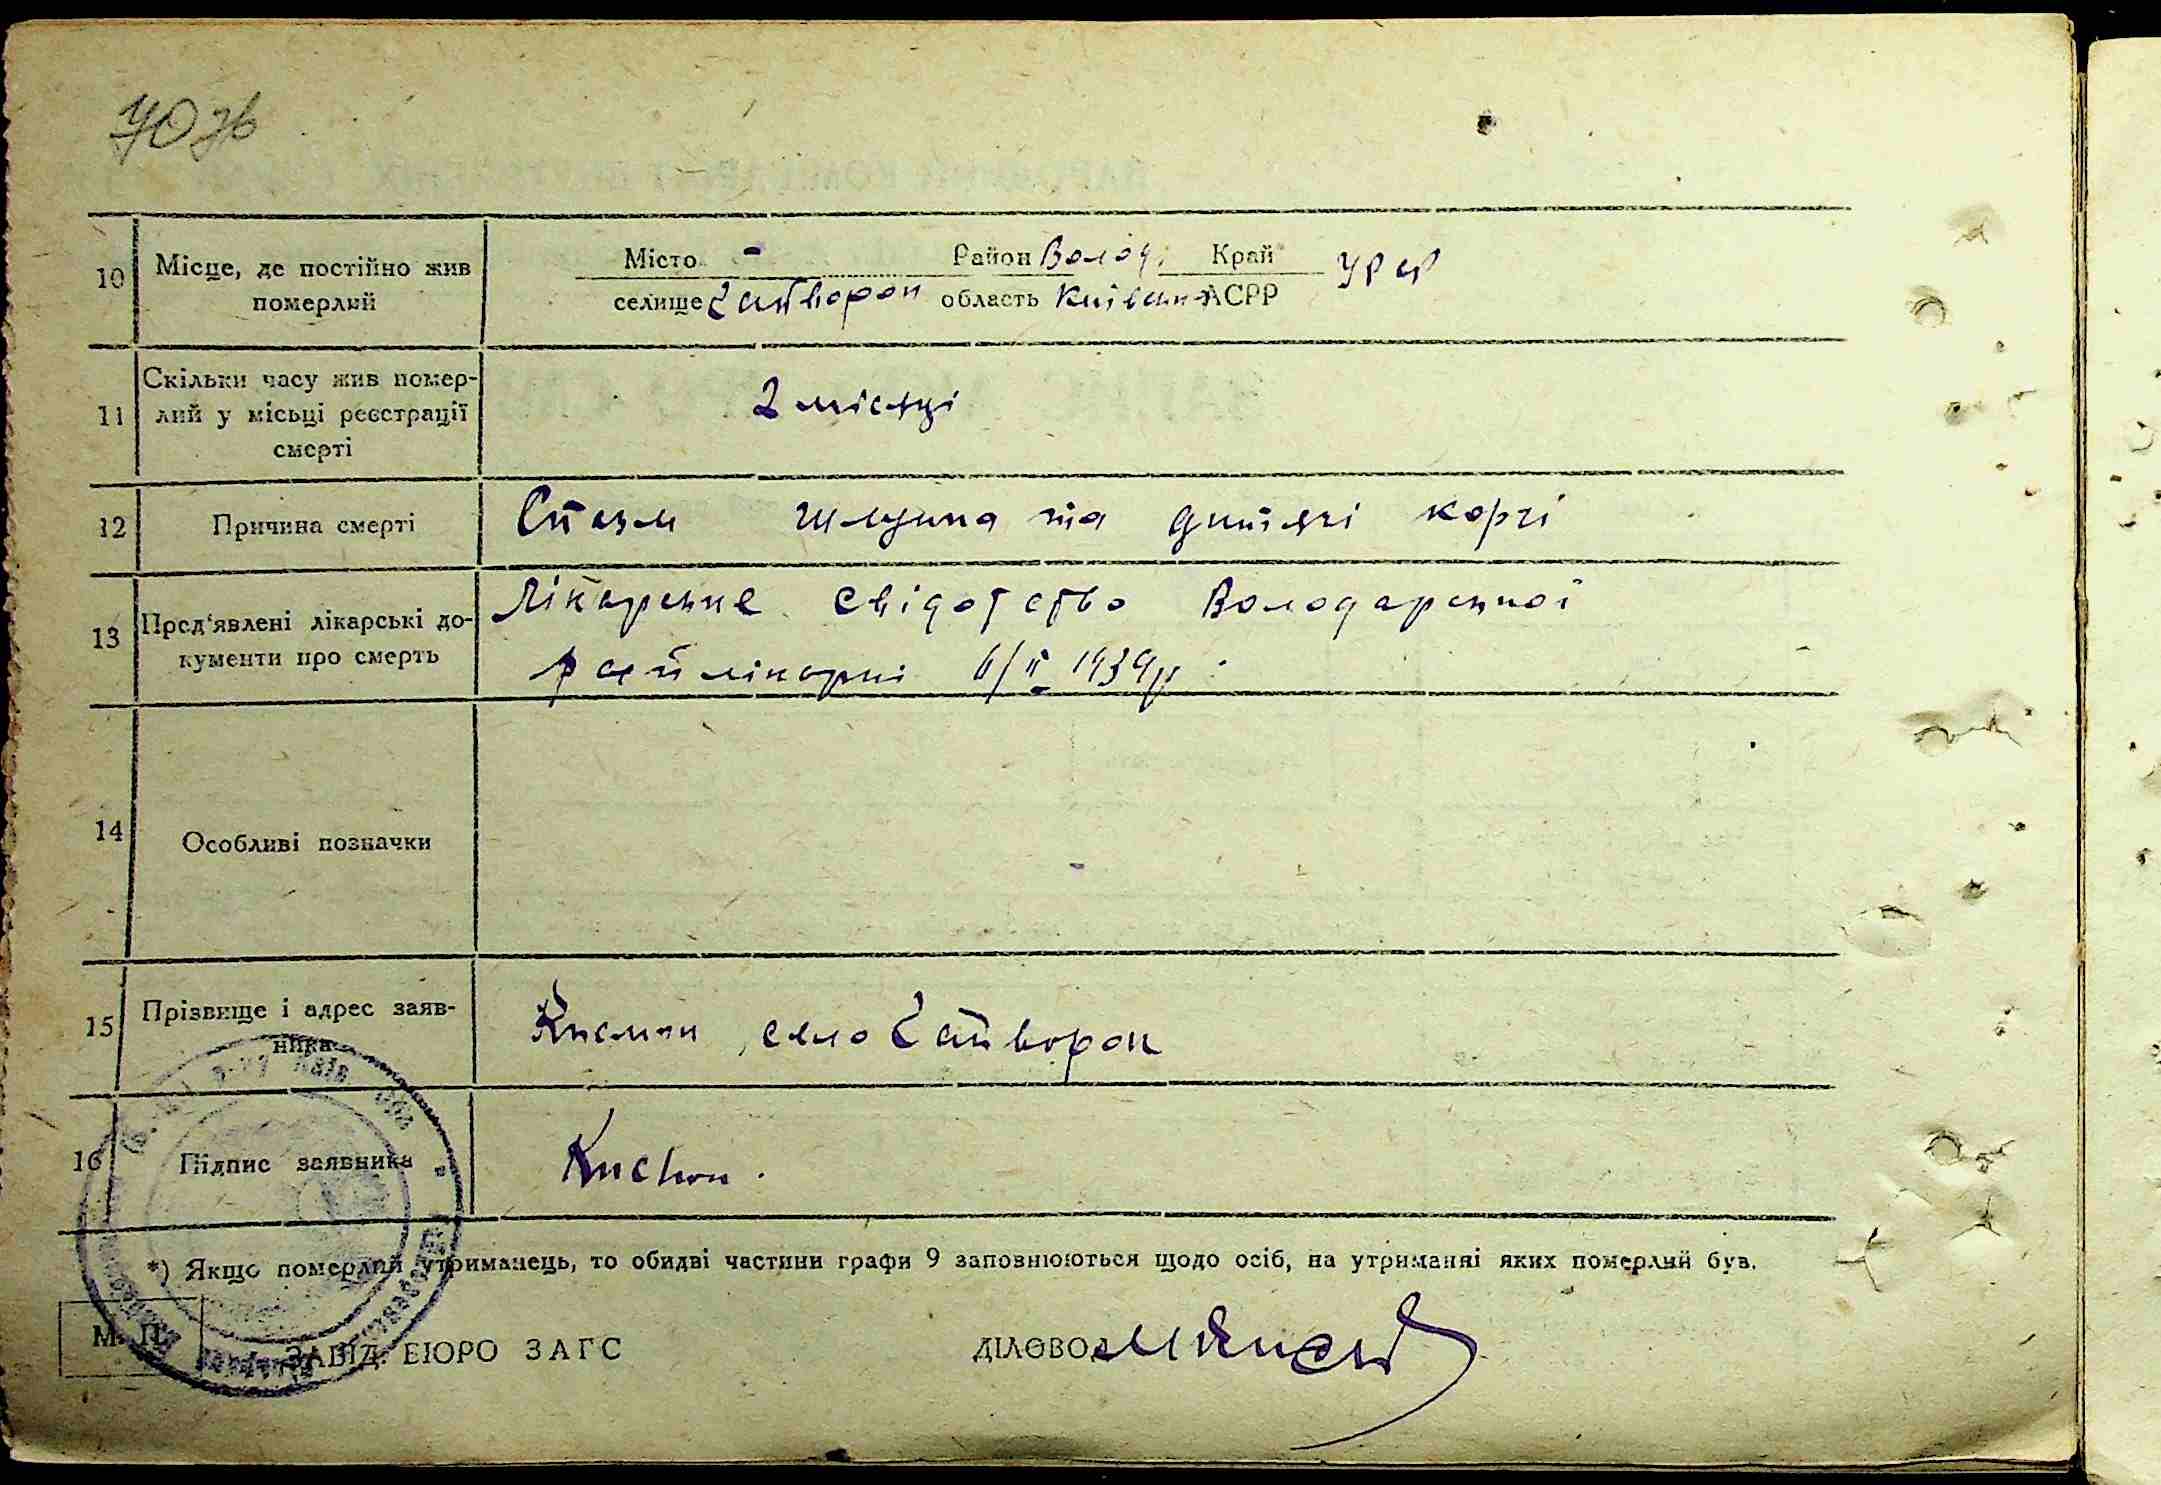 70 зв
10 Місце, де постійно жив померлий
Місто - Район Волод. Край УРСР
селище Гайворон область Київська АСРР
11 Скільки часу жив померлий у місці реєстрації смерті
2 місяці
12 Причина смерті
Спазм шлунка та дитячі корчі
13 Пред'явлені лікарські документи про смерть
Лікарське свідотство Володарської
райлікарні 6/II 1939р.
14 Особливі позначки
15 Прізвище і адрес заявника
село Гайворон
16 Підпис заявника
*) Якщо померлий утриманець, то обидві частини графи 9 заповнюються щодо осіб, на утриманні яких померлий був.
М. П.
ЗАВІД. БЮРО ЗАГС
ДІЛОВОД